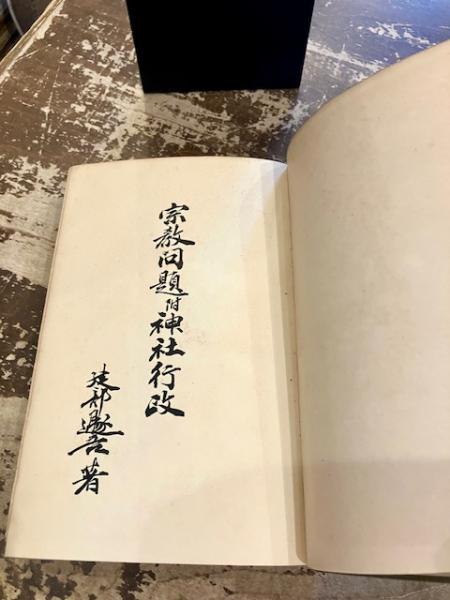 宗教问題附神社行政
建部遯吾著